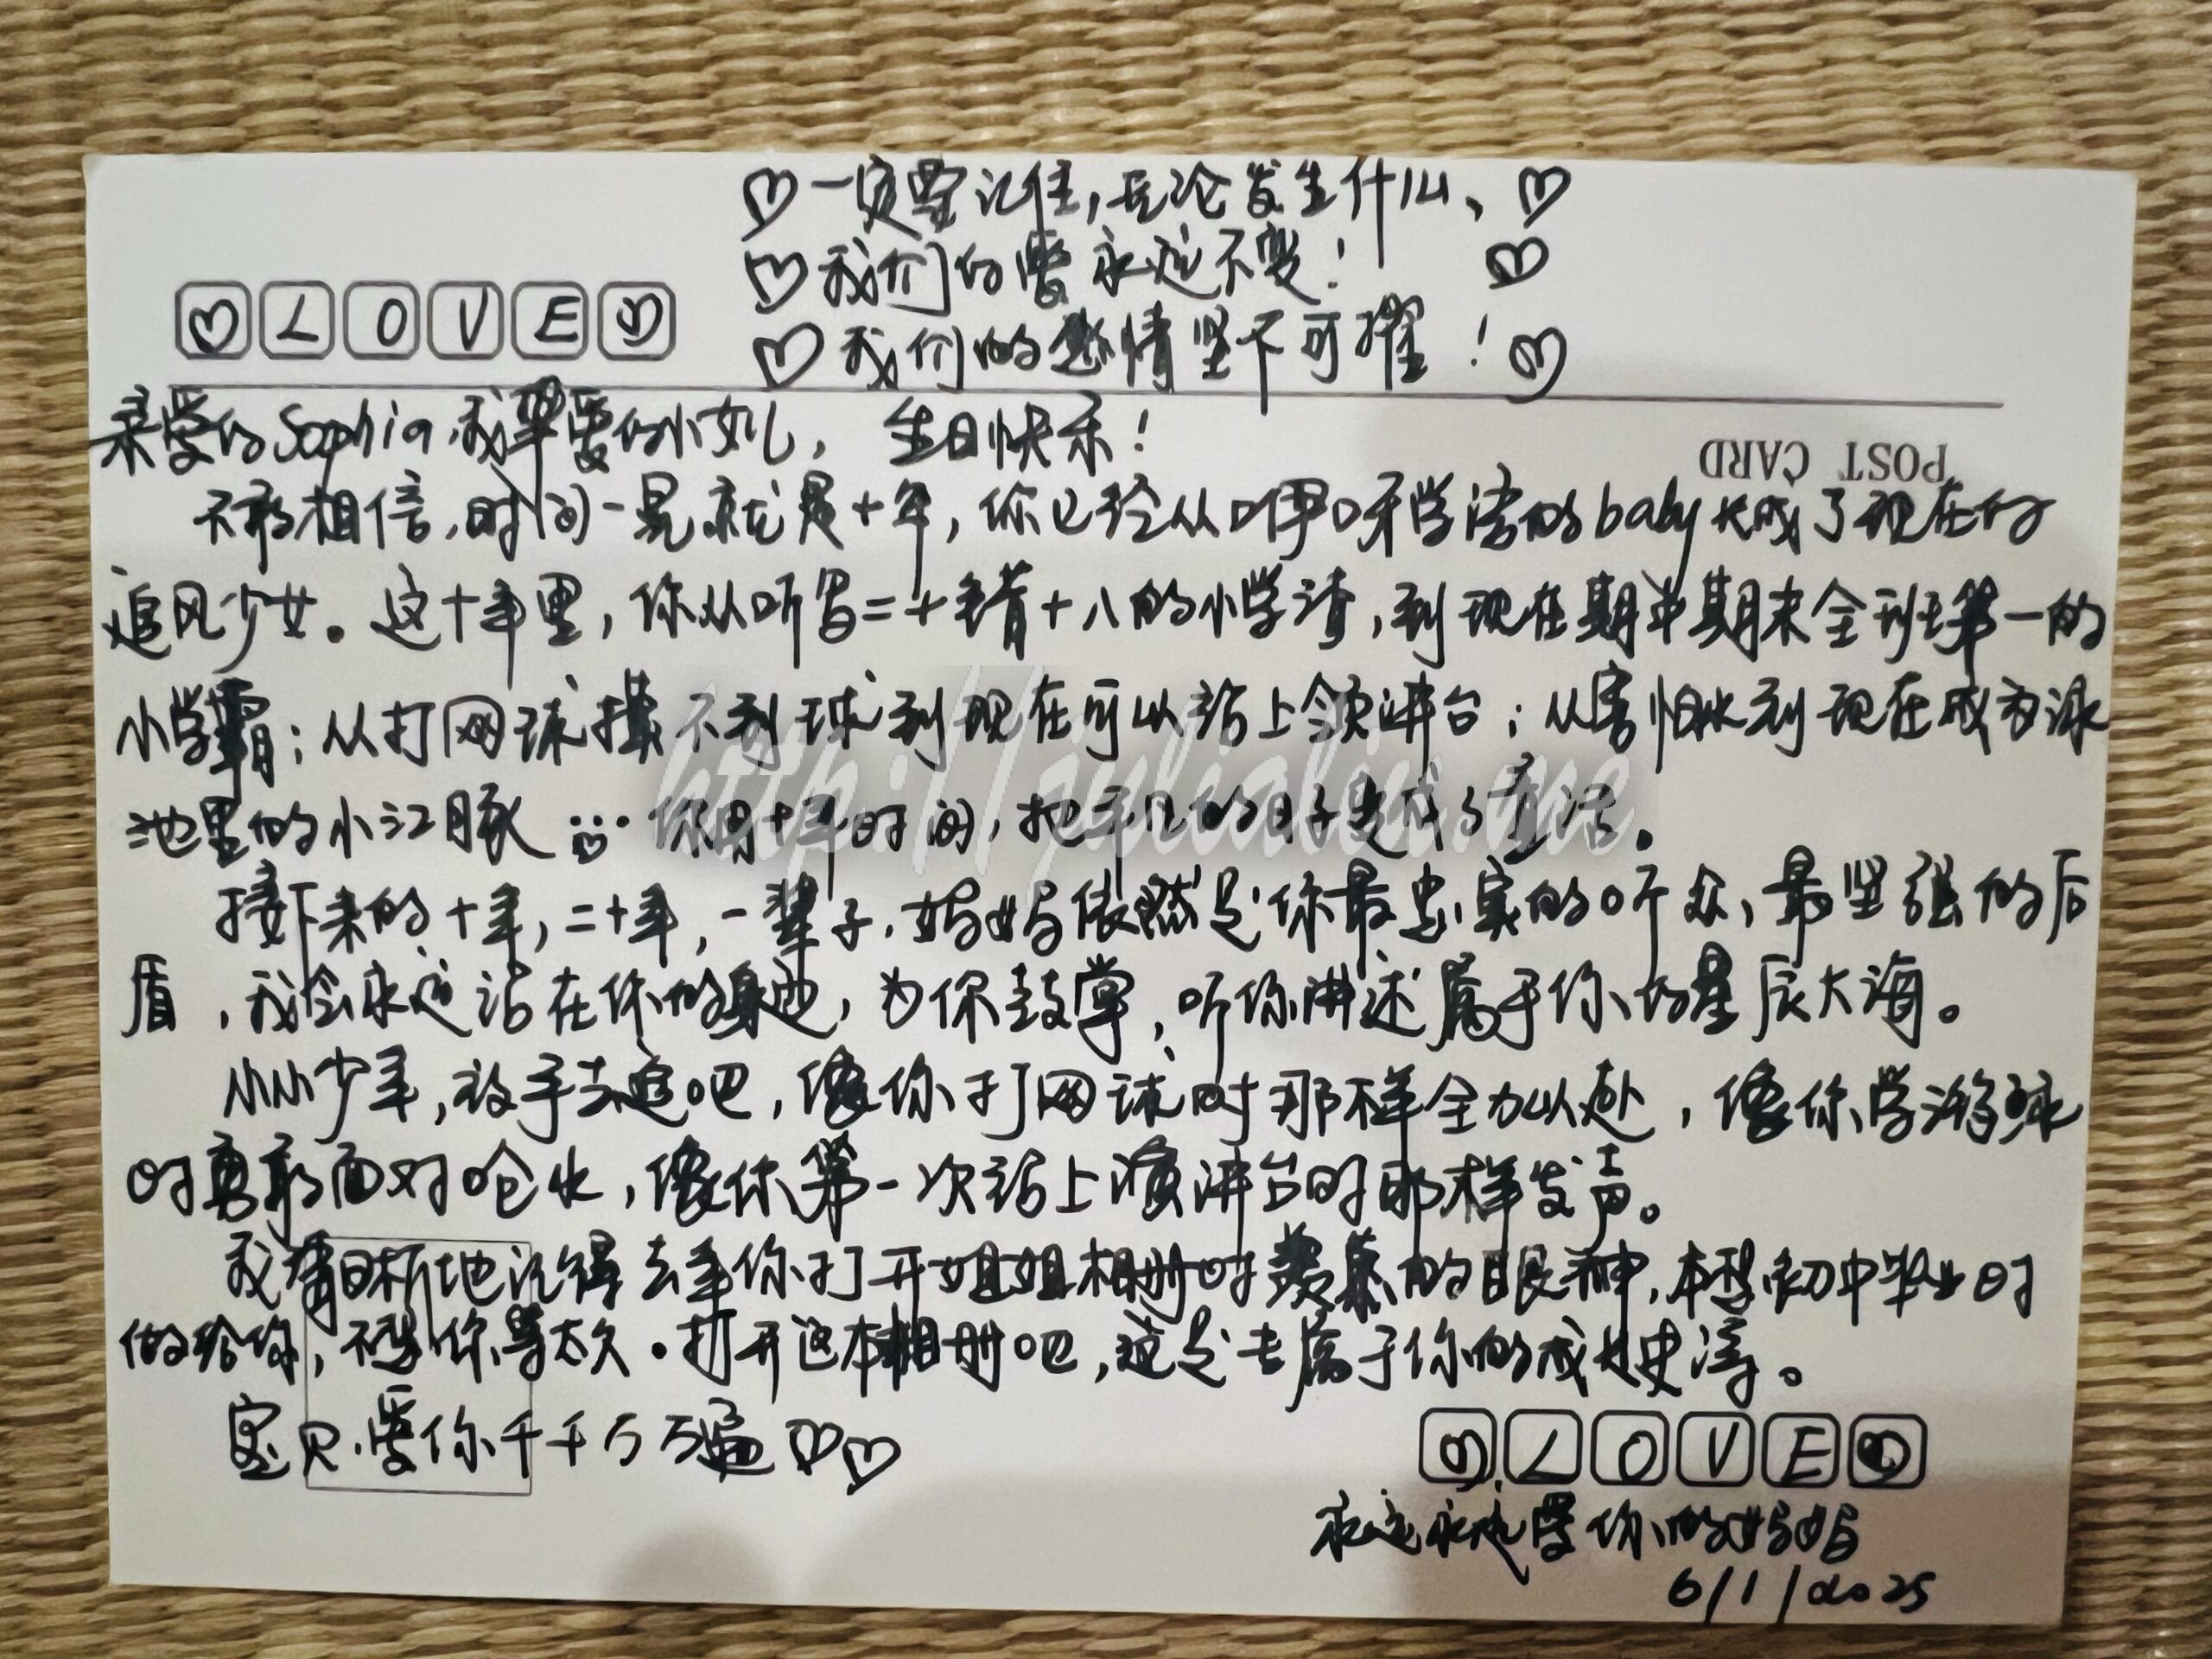 ♡一定要记住,无论发生什么、♡
♡我们的爱永远不变! ♡
♡LOVE♡
♡我们的感情坚不可摧!♡
亲爱的Sophia,我挚爱的小女儿, 生日快乐!
POST CARD
不敢相信,时间一晃就是十年,你已经从咿呀学语的baby长成了现在的
追风少女。这十年里,你从听写二十错十八的小学渣,到现在期中期末全班第一的
小学霸;从打网球摸不到球到现在可以站上领讲台;从害怕水到现在成为泳
池里的小江豚 你用十年时间,把平凡的日子走成了童话。
http://julialiu.me
接下来的十年,二十年,一辈子,妈妈依然是你最忠实的听众,最坚强的后
盾,我会永远站在你的身边,为你鼓掌,听你讲述属于你的星辰大海。
小小少年,放手去追吧,像你打网球时那样全力以赴,像你学游泳
时勇敢面对呛水,像你第一次站上演讲台时那样发声。
我清晰地记得去年你打开姐姐相册时羡慕的眼神,本想初中毕业时
做给你,不想你等太久。打开这本相册吧,这是专属于你的成长史诗。
宝贝,爱你千千万万遍♡♡
♡LOVE♡
永远永远爱你的妈妈
6/1/2025